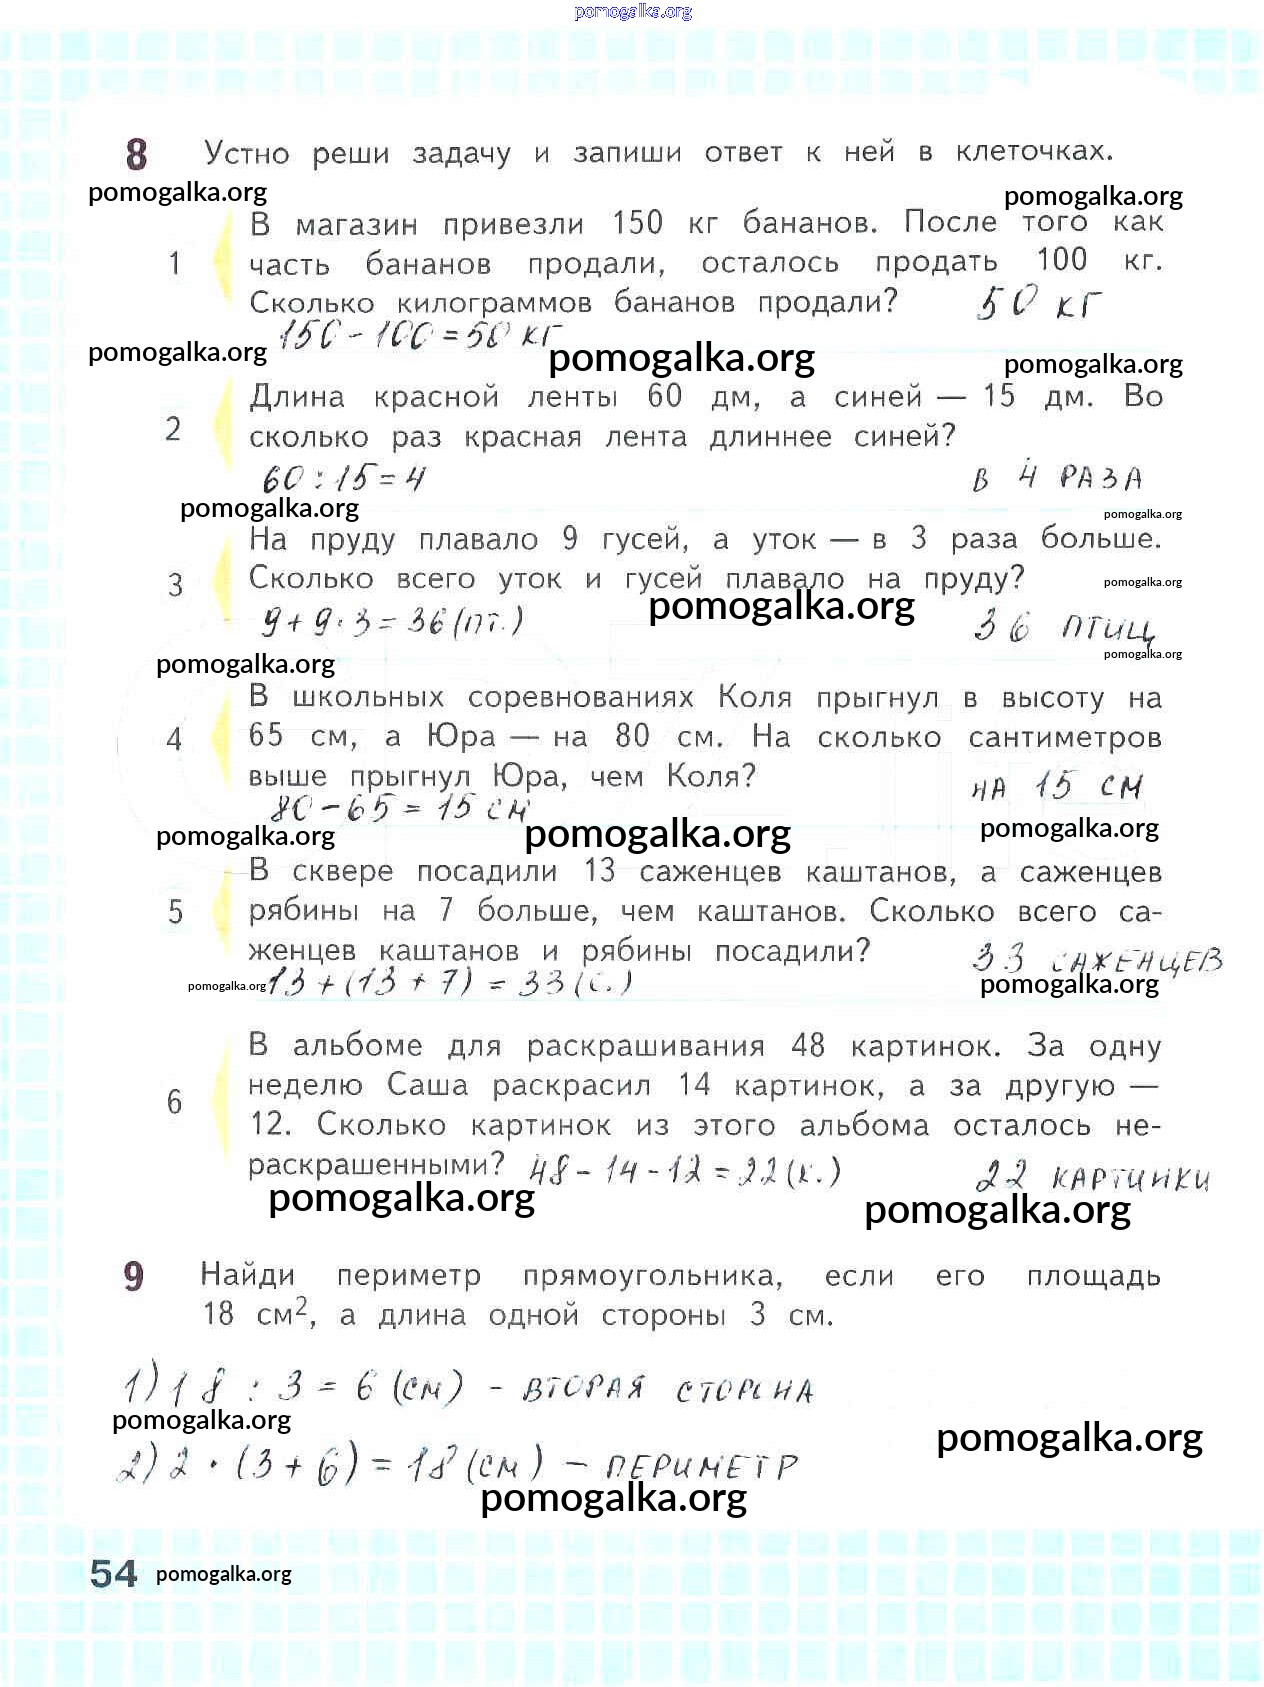 pomogalka.org
8 Устно реши задачу и запиши ответ к ней в клеточках.
pomogalka.org pomogalka.org
В магазин привезли 150 кг бананов. После того как
1 часть бананов продали, осталось продать 100 кг.
Сколько килограммов бананов продали? 50 кг
150 - 100 = 50 кг
pomogalka.org pomogalka.org pomogalka.org
Длина красной ленты 60 дм, а синей — 15 дм. Во
2 сколько раз красная лента длиннее синей?
60 : 15 = 4 В 4 РАЗА
pomogalka.org pomogalka.org
На пруду плавало 9 гусей, а уток — в 3 раза больше.
3 Сколько всего уток и гусей плавало на пруду? pomogalka.org
pomogalka.org
9 + 9 · 3 = 36 (пт.) 36 ПТИЦ
pomogalka.org pomogalka.org
В школьных соревнованиях Коля прыгнул в высоту на
4 65 см, а Юра — на 80 см. На сколько сантиметров
выше прыгнул Юра, чем Коля? НА 15 СМ
80 - 65 = 15 см
pomogalka.org pomogalka.org pomogalka.org
В сквере посадили 13 саженцев каштанов, а саженцев
5 рябины на 7 больше, чем каштанов. Сколько всего са-
женцев каштанов и рябины посадили? 33 САЖЕНЦЕВ
pomogalka.org 13 + (13 + 7) = 33 (с.) pomogalka.org
В альбоме для раскрашивания 48 картинок. За одну
неделю Саша раскрасил 14 картинок, а за другую —
6 12. Сколько картинок из этого альбома осталось не-
раскрашенными? 48 - 14 - 12 = 22 (к.) 22 КАРТИНКИ
pomogalka.org pomogalka.org
9 Найди периметр прямоугольника, если его площадь
18 см², а длина одной стороны 3 см.
1) 18 : 3 = 6 (см) - ВТОРАЯ СТОРОНА
pomogalka.org pomogalka.org
2) 2 · (3 + 6) = 18 (см) - ПЕРИМЕТР
pomogalka.org
54 pomogalka.org